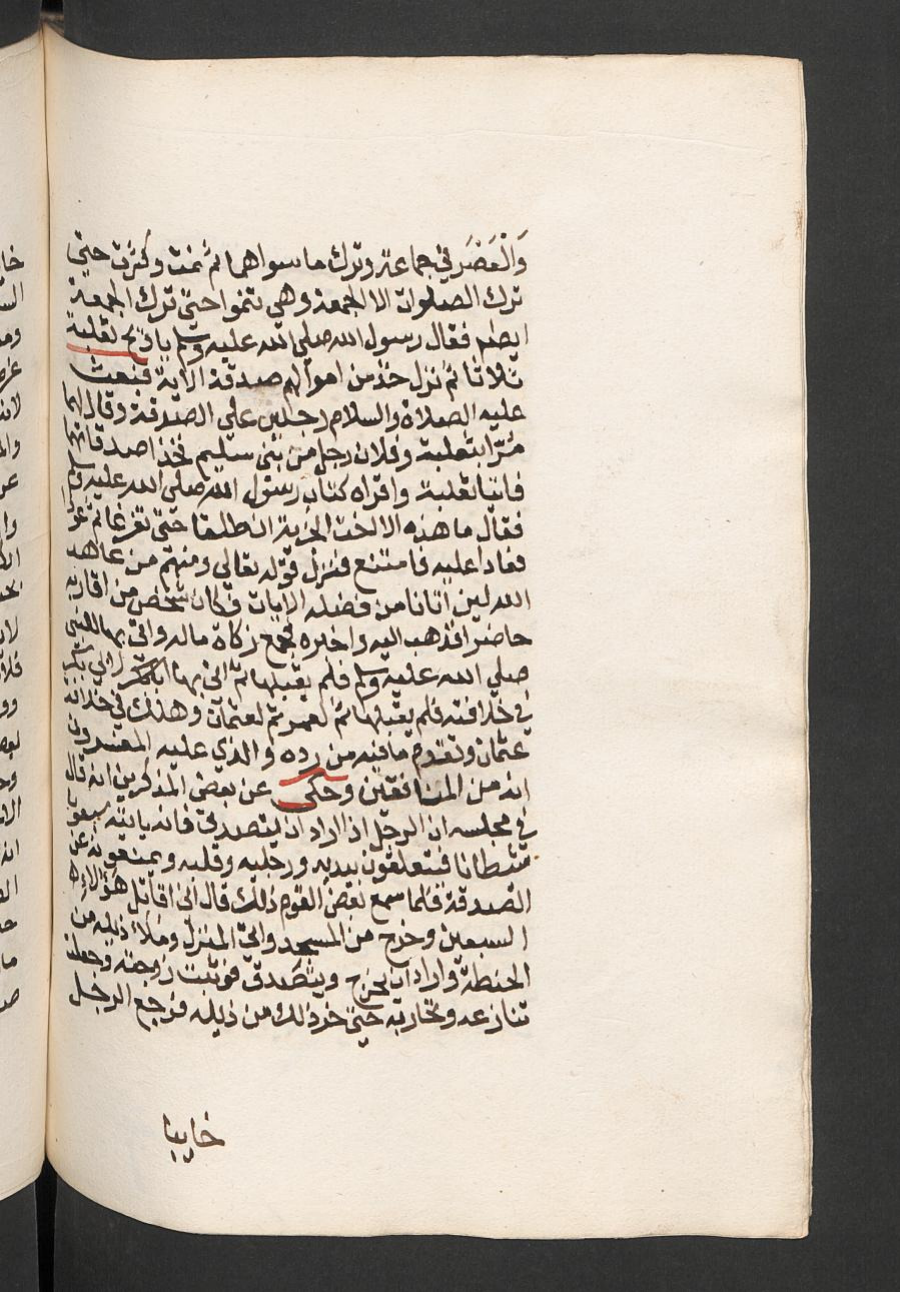 وَالْعَصَر في جماعة وترك ما سواهما ثم نمت وكثرت حتى
ترك الصلوات الا الجمعة وهي تنموا حتى ترك الجمعة
ايضا فقال رسول الله صلي الله عليه وسلم ياويح ثعلبة
ثلاثا ثم نزل خذ من اموالهم صدقة الاية فبعث
عليه الصلاة والسلام رجلين علي الصدقة وقال لهما
مُرّا بثعلبة وفلان رجل من بني سليم فخذا صدقاتهما
فاتيا ثعلبة واقراه كتاب رسول الله صلي الله عليه وسلم
فقال ما هذه الا اخت الجزية انطلقا حتى تفرغا ثم عودا
فعادا عليه فامتنع فنزل قوله تعالي ومنهم من عاهد
الله لين اتانا من فضله الايات وكان شخص من اقاربه
حاضرا فذهب اليه واخبره فجمع زكاة ماله واتي بها للنبي
صلي الله عليه وسلم فلم يقبلها ثم اتي بها لابي بكر
في خلافته فلم يقبلها ثم لعمر ثم لعثمان وهلك في خلافة
عثمان وتقدم ما فيه من رده والذي عليه المفسرون
انه من المنافقين وحكى عن بعض المذكرين انه قال
في مجلسه ان الرجل اذا اراد ان يتصدق فانه ياتيه سبعون
شيطانا فيتعلقون بيديه ورجليه وقلبه ويمنعونه عن
الصدقة فلما سمع بعض القوم ذلك قال اني اقاتل هؤلاء
السبعين وخرج من المسجد واتي المنزل وملا ذيله من
الحنطة واراد ان يخرج ويتصدق فوثبت زوجته وجعلت
تنازعه وتحاربه حتى خرذلك من ذيله فرجع الرجل
خايبا